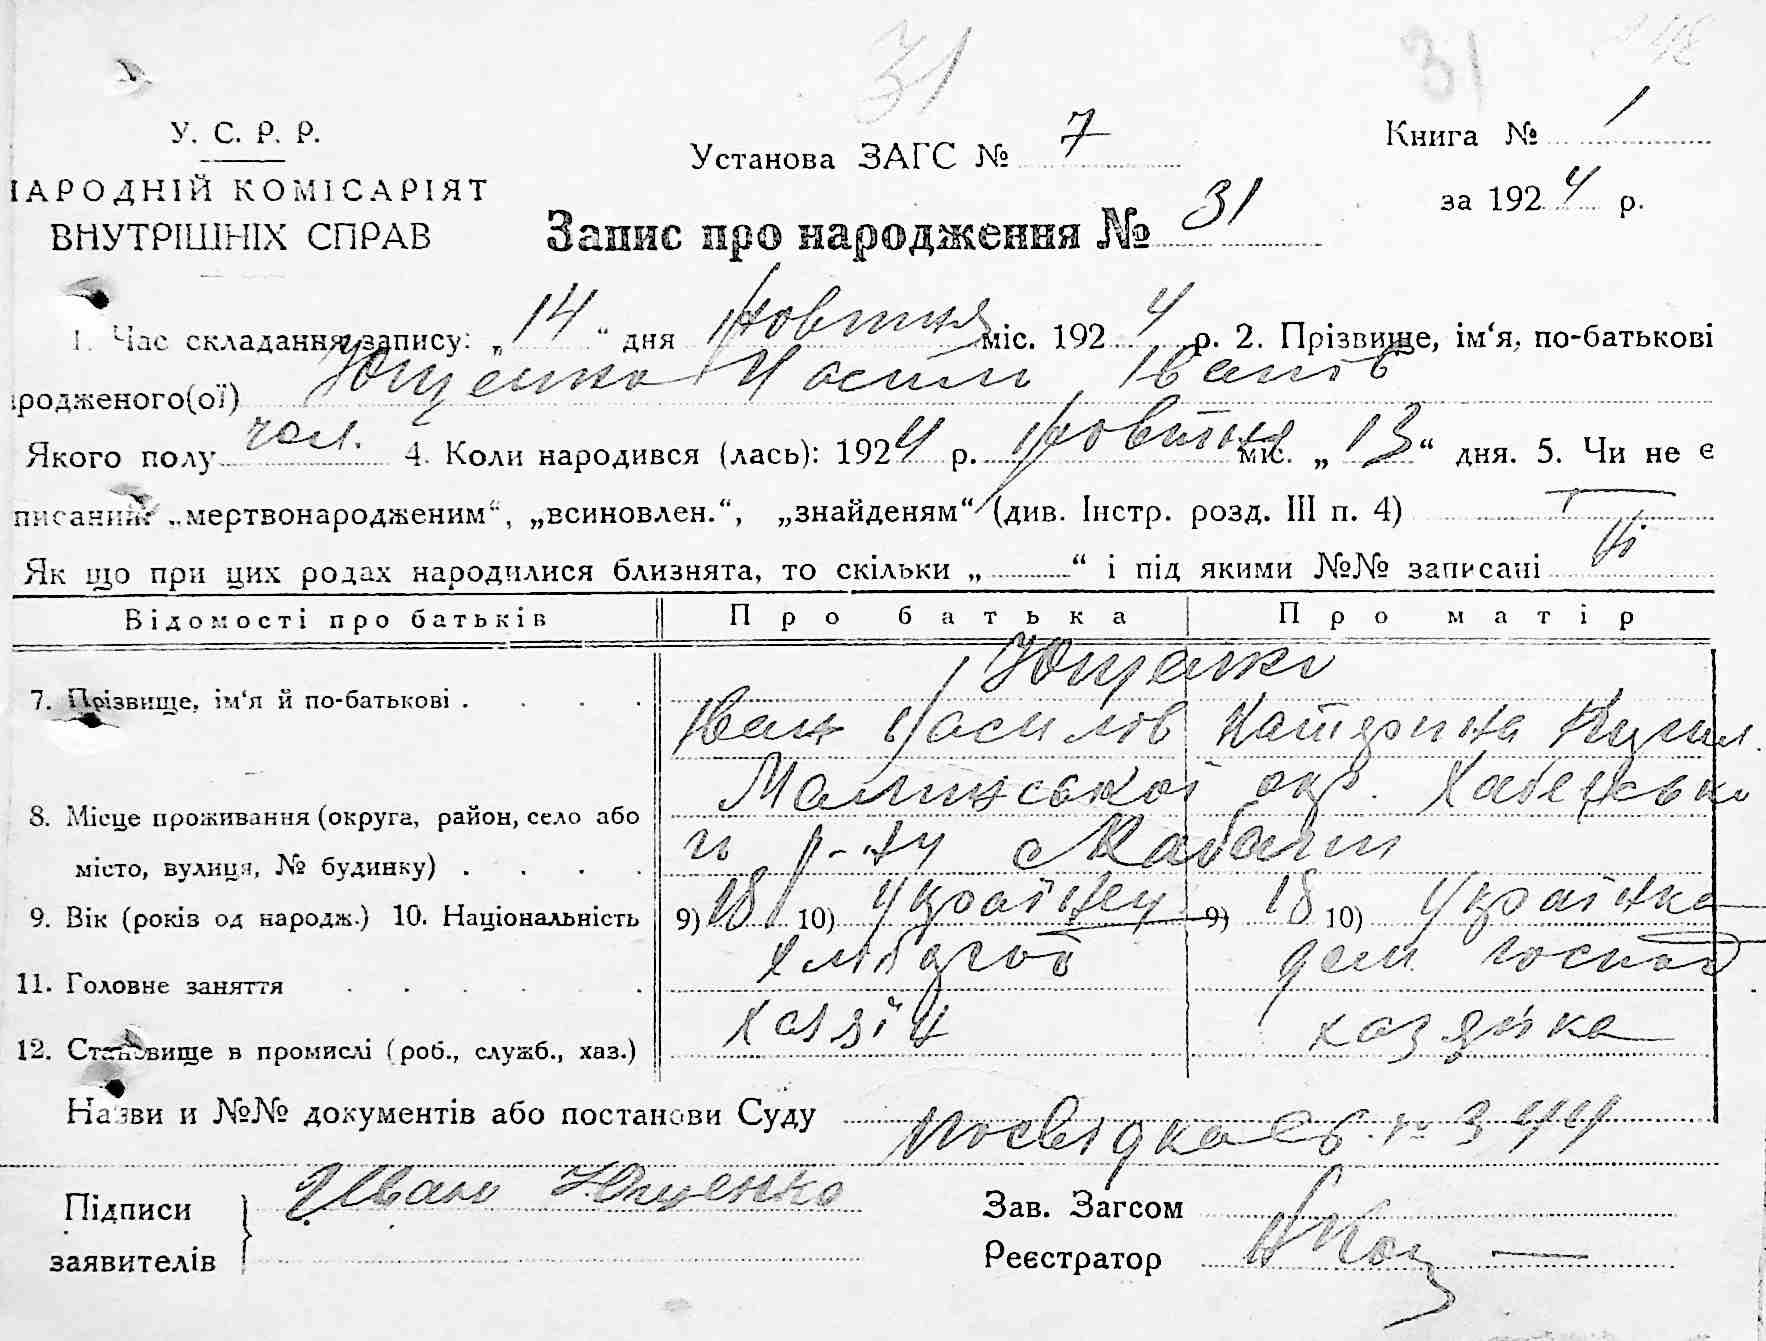 31 31
У. С. Р. Р.
НАРОДНІЙ КОМІСАРІЯТ
ВНУТРІШНІХ СПРАВ
Установа ЗАГС № 7
Книга № 1
за 1924 р.
Запис про народження № 31
1. Час складання запису: „14“ дня жовтня міс. 1924 р. 2. Прізвище, ім‘я, по-батькові
родженого(ої) Ющенко Василь Іванів
Якого полу чол. 4. Коли народився (лась): 1924 р. жовтня міс. „13“ дня. 5. Чи не є
писаний „мертвонародженим“, „всиновлен.“, „знайденям“ (див. Інстр. розд. III п. 4) —
Як що при цих родах народилися близнята, то скільки „ “ і під якими №№ записані Ні
Відомості про батьків Про батька Про матір
7. Прізвище, ім‘я й по-батькові Ющенко
Іван Василів Катерина
8. Місце проживання (округа, район, село або місто, вулиця, № будинку) Малинської окр.
р-ну
9. Вік (років од народж.) 10. Національність 9) 18 10) Українец 9) 18 10) Українка
11. Головне заняття хлібороб дом. господ
12. Становище в промислі (роб., служб., хаз.) хазяїн хазяйка
Назви и №№ документів або постанови Суду посвідка № 344
Підписи заявителів Иван Ющенко
Зав. Загсом
Реєстратор —